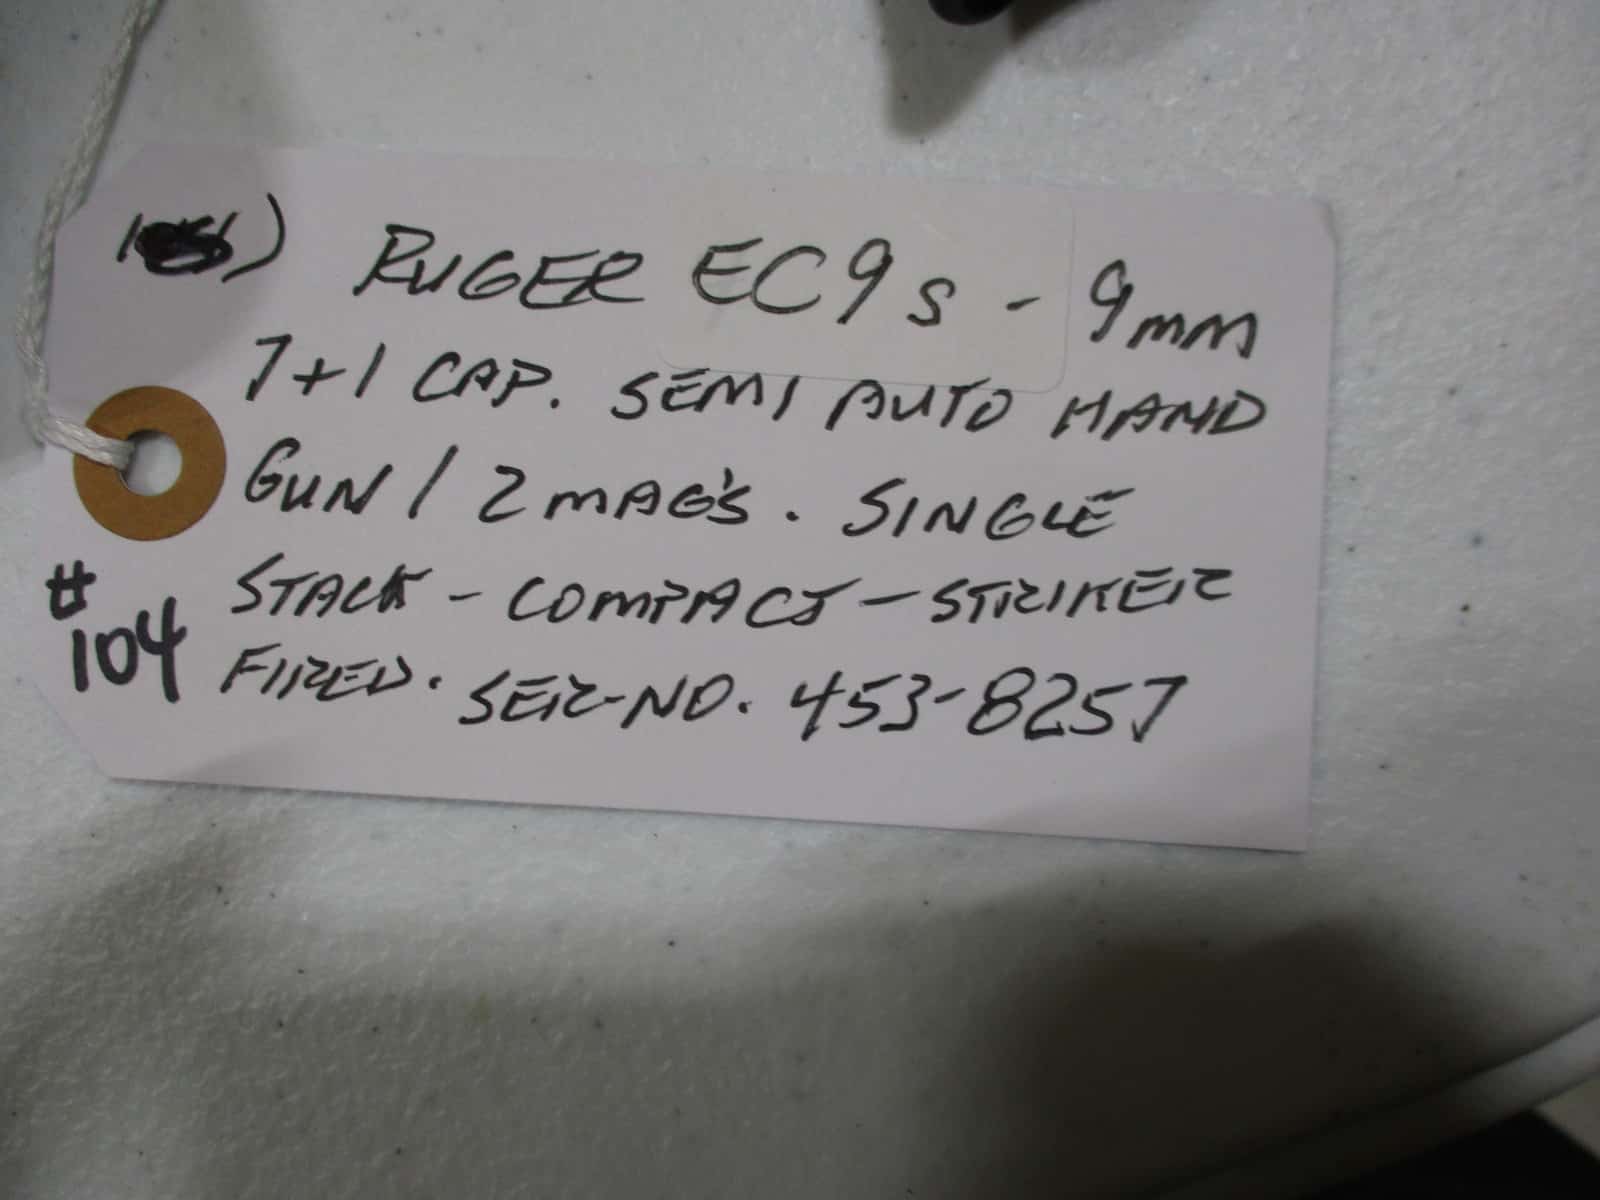 RUGER EC9s - 9mm
7+1 CAP. SEMI AUTO HAND
GUN / 2 MAG'S. SINGLE
STACK - COMPACT - STRIKER
FIRED. SER-NO. 453-8257
#104